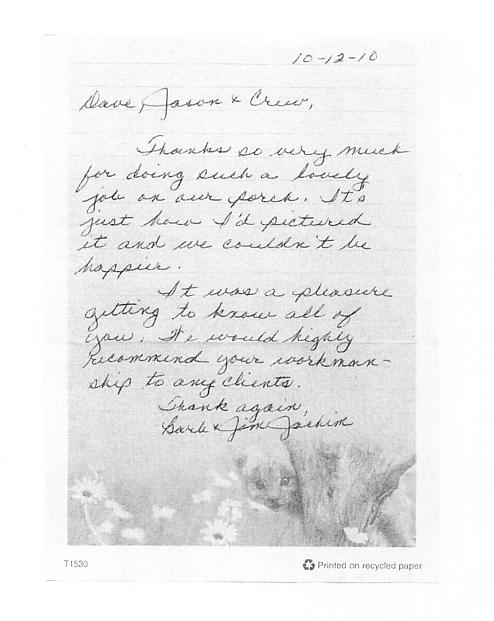 10-12-10
Dave, Jason & Crew,
Thanks so very much
for doing such a lovely
job on our porch. It's
just how I'd pictured
it and we couldn't be
happier.
It was a pleasure
getting to know all of
you. We would highly
recommend your workman-
ship to any clients.
Thank again,
Barb & Jim Jachim
T1530
Printed on recycled paper